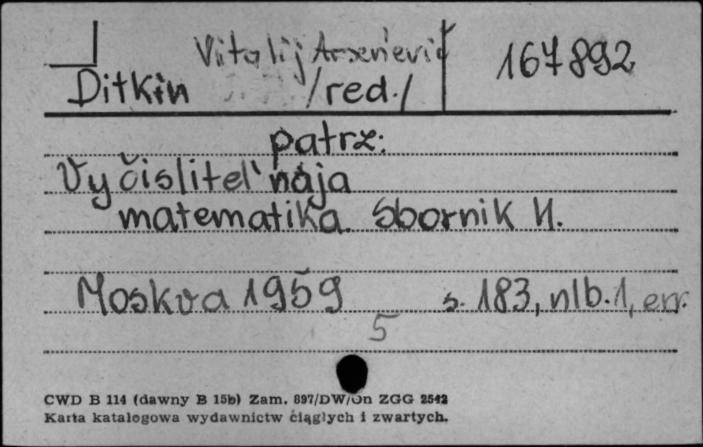 Vitalij Arsenievič
167892
Ditkin /red./
patrz:
Vyčislitel'naja
matematika. Sbornik 4.
Moskva 1959 s. 183, nlb. 1, err.
5
CWD B 114 (dawny B 15b) Zam. 897/DW/Dn ZGG 2542
Karta katalogowa wydawnictw ciągłych i zwartych.